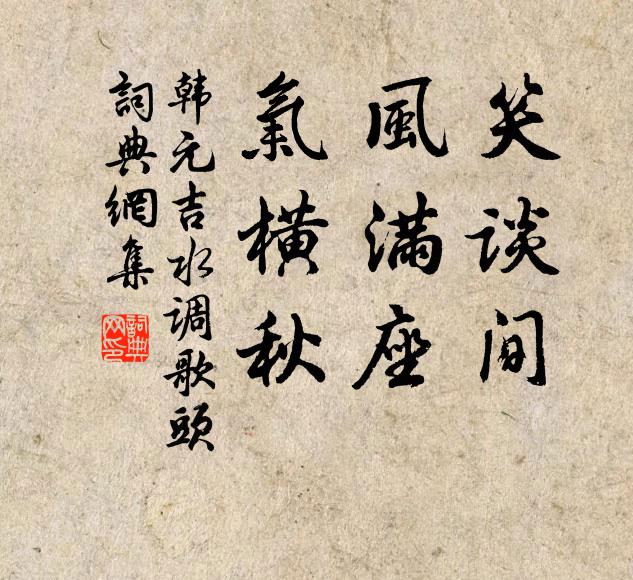 笑談间
風滿座
氣橫秋
韩元吉水调歌頭
詞典網集
詞典网印